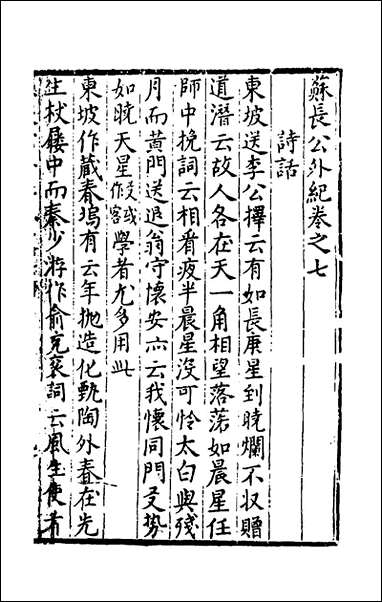 蘇長公外紀卷之七
詩話
東坡送李公擇云有如長庚星到曉爛不収贈
道潛云故人各在天一角相望落落如晨星任
師中挽詞云相看疲半晨星没可憐太白與殘
月而黃門送退翁守懷安亦云我懷同門友勢
如曉天星殘或作客學者尤多用此
東坡作藏春塢有云年抛造化甄陶外春在先
生杖屨中而秦少游作俞充哀詞云風生使者